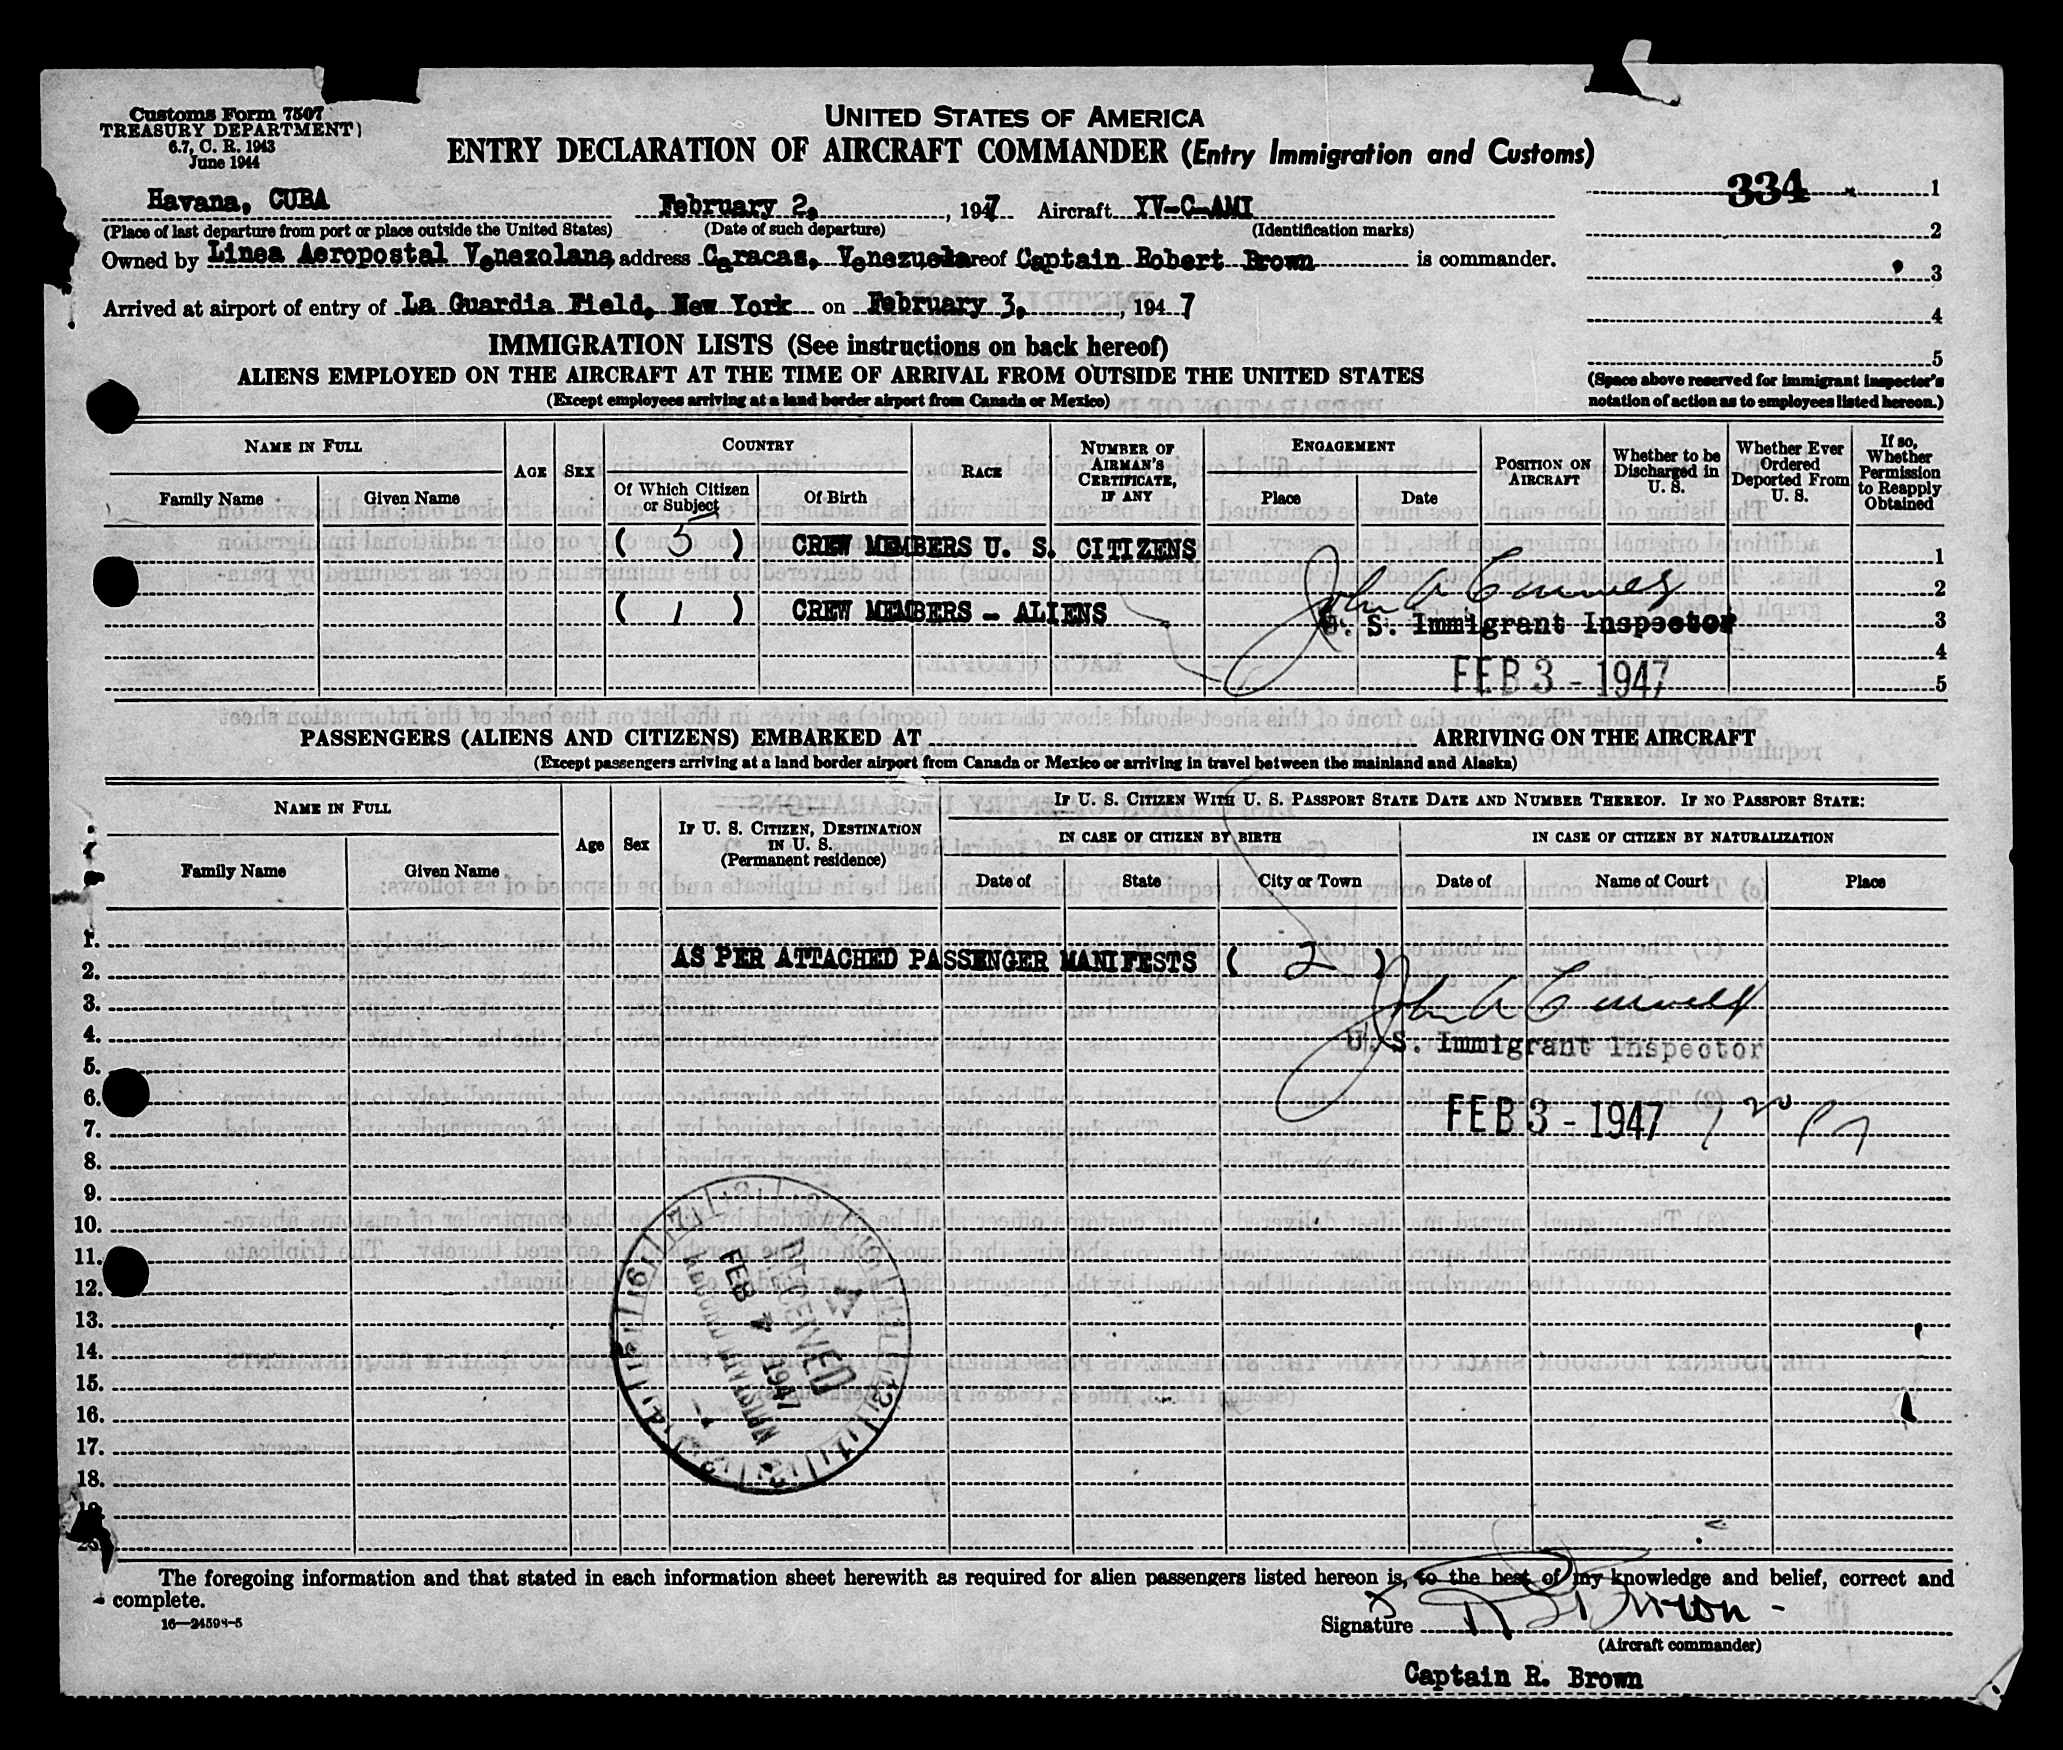 Customs Form 7507
TREASURY DEPARTMENT)
6.7, C. R. 1943
June 1944
UNITED STATES OF AMERICA
ENTRY DECLARATION OF AIRCRAFT COMMANDER (Entry Immigration and Customs)
334
1
Havana, CUBA February 2, , 1947 Aircraft YV-C-AMI
(Place of last departure from port or place outside the United States) (Date of such departure) (Identification marks)
2
Owned by Linea Aeropostal Venezolana address Caracas, Venezuela reof Captain Robert Brown is commander.
3
Arrived at airport of entry of La Guardia Field, New York on February 3, , 1947
4
IMMIGRATION LISTS (See instructions on back hereof)
5
ALIENS EMPLOYED ON THE AIRCRAFT AT THE TIME OF ARRIVAL FROM OUTSIDE THE UNITED STATES
(Except employees arriving at a land border airport from Canada or Mexico)
(Space above reserved for immigrant inspector's
notation of action as to employees listed hereon.)
NAME IN FULL
Family Name
Given Name
AGE
SEX
COUNTRY
Of Which Citizen
or Subject
Of Birth
RACE
NUMBER OF
AIRMAN'S
CERTIFICATE,
IF ANY
ENGAGEMENT
Place
Date
POSITION ON
AIRCRAFT
Whether to be
Discharged in
U. S.
Whether Ever
Ordered
Deported From
U. S.
If so,
Whether
Permission
to Reapply
Obtained
( 5 ) CREW MEMBERS U. S. CITIZENS
1
2
( 1 ) CREW MEMBERS - ALIENS
3
U. S. Immigrant Inspector
4
FEB 3 - 1947
5
PASSENGERS (ALIENS AND CITIZENS) EMBARKED AT ARRIVING ON THE AIRCRAFT
(Except passengers arriving at a land border airport from Canada or Mexico or arriving in travel between the mainland and Alaska)
NAME IN FULL
Family Name
Given Name
Age
Sex
IF U. S. CITIZEN, DESTINATION
IN U. S.
(Permanent residence)
IF U. S. CITIZEN WITH U. S. PASSPORT STATE DATE AND NUMBER THEREOF. IF NO PASSPORT STATE:
IN CASE OF CITIZEN BY BIRTH
IN CASE OF CITIZEN BY NATURALIZATION
Date of
State
City or Town
Date of
Name of Court
Place
1.
AS PER ATTACHED PASSENGER MANIFESTS ( 2 )
2.
3.
4.
U. S. Immigrant Inspector
5.
6.
FEB 3 - 1947
7.
8.
9.
10.
11.
12.
13.
14.
15.
16.
17.
18.
19.
20.
RECEIVED
FEB 7 1947
The foregoing information and that stated in each information sheet herewith as required for alien passengers listed hereon is, to the best of my knowledge and belief, correct and
complete.
16—24598-5
Signature R Brown
(Aircraft commander)
Captain R. Brown